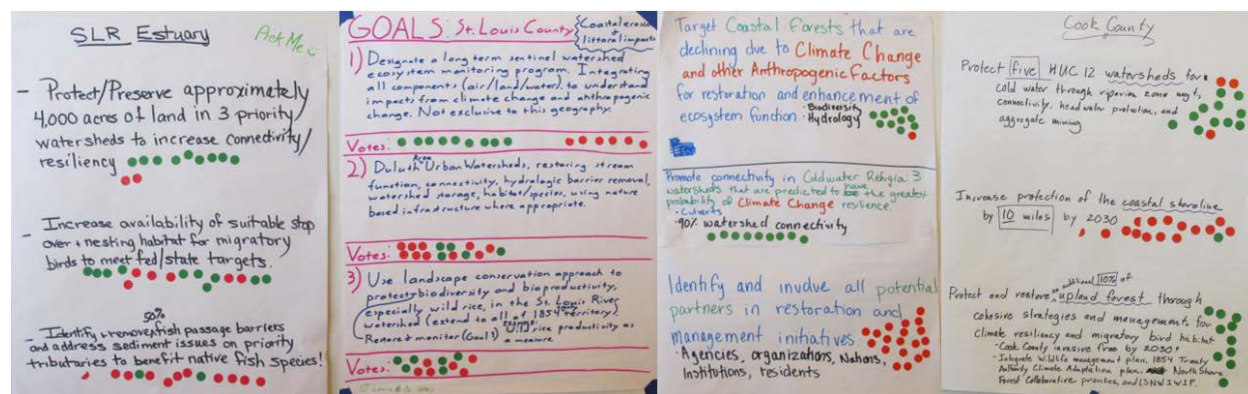 SLR Estuary
Pick Me
- Protect/Preserve approximately
4,000 acres of land in 3 priority
watersheds to increase connectivity/
resiliency
- Increase availability of suitable stop
over + nesting habitat for migratory
birds to meet fed/state targets.
50%
- Identify + remove fish passage barriers
and address sediment issues on priority
tributaries to benefit native fish species!
GOALS: St. Louis County
Coastal erosion
+
littoral impacts
1) Designate a long term sentinel watershed
ecosystem monitoring program. Integrating
all components (air/land/water) to understand
impacts from climate change and anthropogenic
change. Not exclusive to this geography.
Votes:
2) Duluth Area Urban Watersheds, restoring stream
function, connectivity, hydrologic barrier removal,
watershed storage, habitat/species, using nature
based infrastructure where appropriate.
Votes:
3) Use landscape conservation approach to
protect biodiversity and bioproductivity,
especially wild rice, in the St. Louis River
watershed (extend to all of 1854 territory).
Restore & monitor (Goal 1) Wild rice productivity as
a measure
Votes:
Target Coastal Forests that are
declining due to Climate Change
and other Anthropogenic Factors
for restoration and enhancement of
ecosystem function · Biodiversity
· Hydrology
Promote connectivity in Coldwater Refugia: 3
watersheds that are predicted to have the greatest
probability of Climate Change resilience.
- Culverts
- 90% watershed connectivity
Identify and involve all potential
partners in restoration and
management initiatives
- Agencies, organizations, Nations,
Institutions, residents
Cook County
Protect five HUC 12 watersheds for
cold water through riparian zone mgt,
connectivity, headwater protection, and
aggregate mining
Increase protection of the coastal shoreline
by 10 miles by 2030
additional 10% of
Protect and restore an upland forest thorough
cohesive strategies and management for
climate resiliency and migratory bird habitat
- Cook County invasive free by 2030!
- Integrate Wildlife management plan, 1854 Treaty
Authority Climate Adaptation plan, North Shore
Forest Collaborative priorities, and LSNW1W1P.